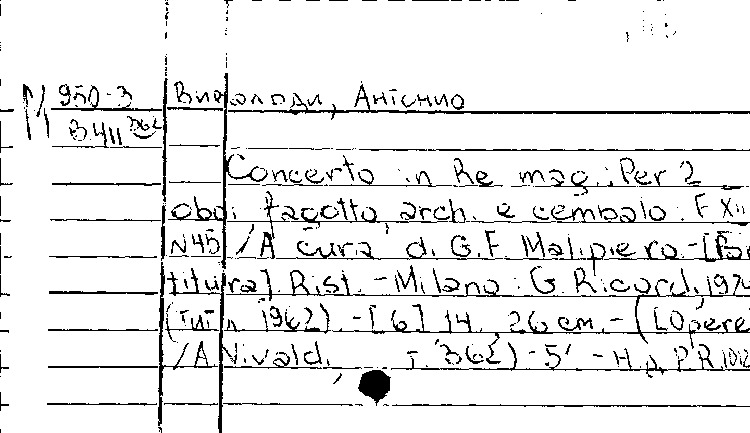 М 950-3 Вивальди, Антонио
В411 362
Concerto in Re mag.: Per 2
oboi fagotto, arch. e cembalo: F XII
N45 / A cura di G.F. Malipiero.-[Par
titura] Rist. - Milano: G. Ricordi, 1974
(тит л 1962). - [6] 14, 26 cm. - ([Opere]
/ A Vivaldi, т. 362) - 5' - Н.д. P.R.